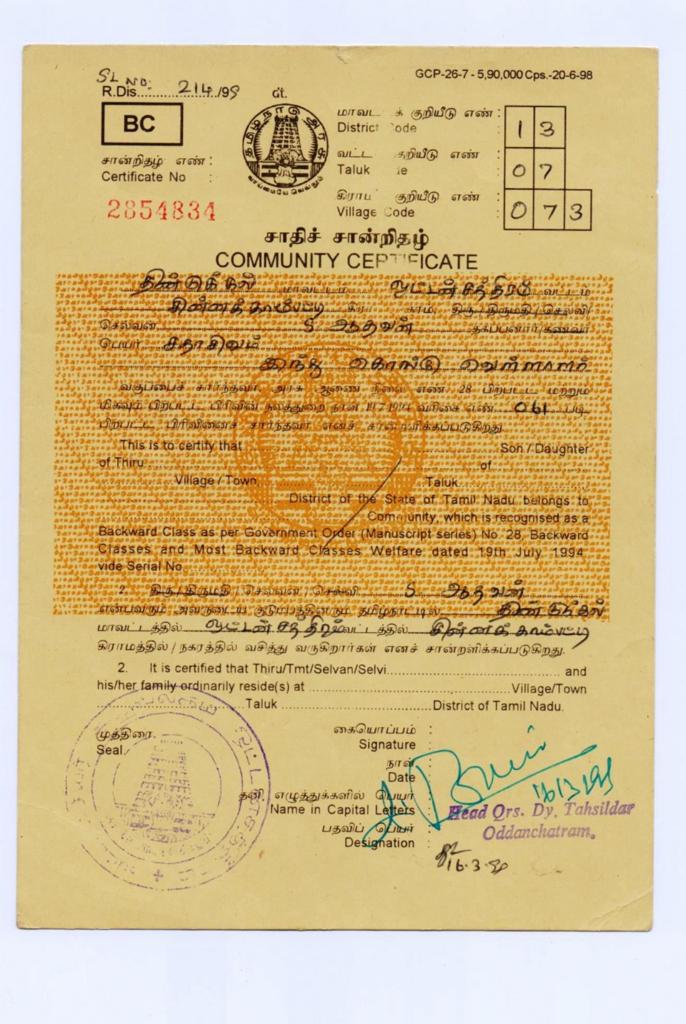 GCP-26-7 - 5,90,000 Cps.-20-6-98
SL NO:
R.Dis. 214/99 dt.
BC
தமிழ்நாடு அரசு
வாய்மையே வெல்லும்
மாவட்டக் குறியீடு எண் : 1 3
District Code
வட்டக் குறியீடு எண் : 0 7
Taluk Code
கிராமக் குறியீடு எண் : 0 7 3
Village Code
சான்றிதழ் எண் :
Certificate No :
2854834
சாதிச் சான்றிதழ்
COMMUNITY CERTIFICATE
திண்டுக்கல் மாவட்டம் ஒட்டன்சத்திரம் வட்டம்
கிராமம், திரு/திருமதி/செல்வி/
செல்வன் S ஆதவன் தகப்பனார்/கணவர்
பெயர் சதாசிவம்
இந்து கொங்கு வெள்ளாளர்
வகுப்பைச் சார்ந்தவர். அரசு ஆணை நிலை எண். 28 பிற்பட்ட மற்றும்
மிகவும் பிற்பட்ட பிரிவின் நலத்துறை நாள் 19-7-1994 வரிசை எண். 061 படி
பிற்பட்ட பிரிவினைச் சார்ந்தவர் எனச் சான்றளிக்கப்படுகிறது.
This is to certify that Son / Daughter
of Thiru of
Village / Town Taluk
District of the State of Tamil Nadu belongs to
Community, which is recognised as a
Backward Class as per Government Order (Manuscript series) No. 28, Backward
Classes and Most Backward Classes Welfare dated 19th July 1994
vide Serial No.
2. திரு/திருமதி/செல்வன்/செல்வி S ஆதவன்
என்பவரும் அவருடைய குடும்பத்தினரும் தமிழ்நாட்டில் திண்டுக்கல்
மாவட்டத்தில் ஒட்டன்சத்திரம் வட்டத்தில்
கிராமத்தில் / நகரத்தில் வசித்து வருகிறார்கள் எனச் சான்றளிக்கப்படுகிறது.
2. It is certified that Thiru/Tmt/Selvan/Selvi and
his/her family ordinarily reside(s) at Village/Town
Taluk District of Tamil Nadu.
முத்திரை
Seal
கையொப்பம் :
Signature
நாள்
Date
16/3/99
தனி எழுத்துக்களில் பெயர்
Name in Capital Letters
Head Qrs. Dy. Tahsildar
Oddanchatram.
பதவிப் பெயர்
Designation :
16.3.99